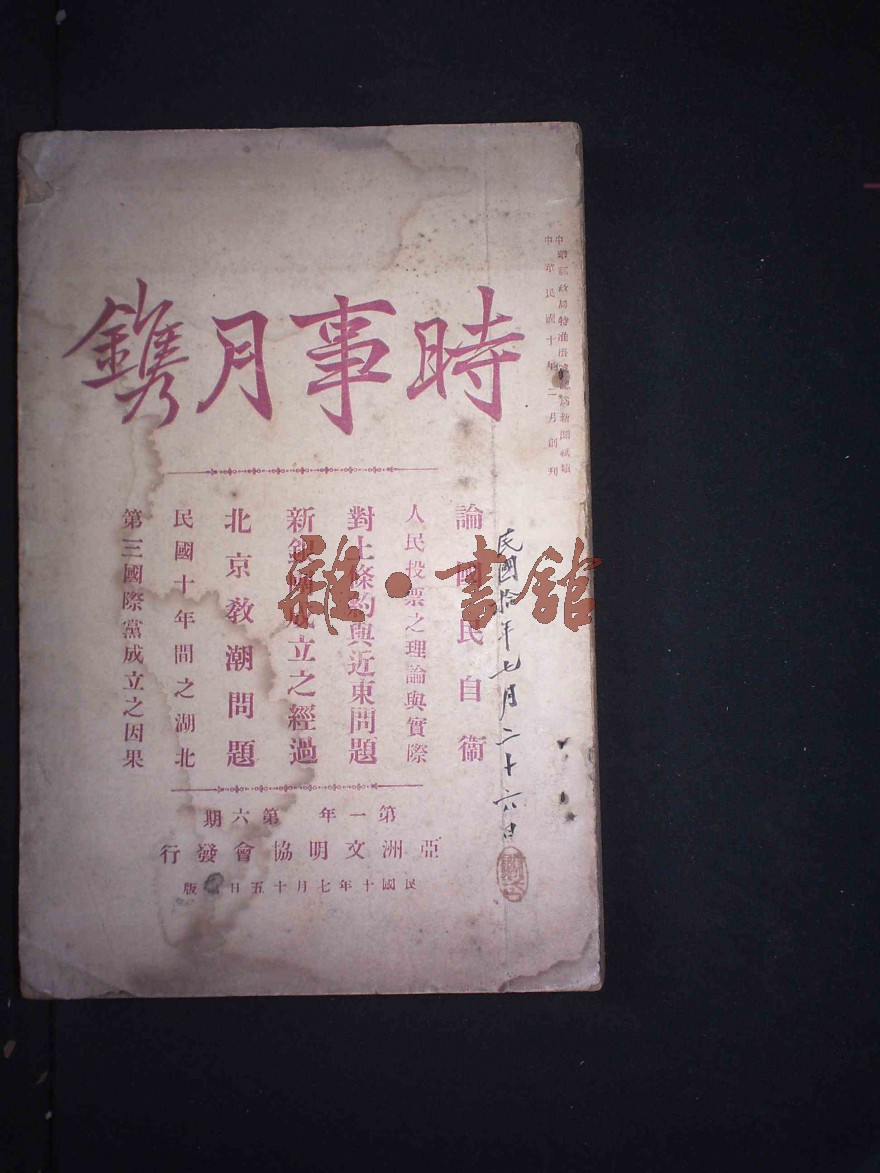 中華郵政局特准掛號認爲新聞紙類
中華民國十年二月創刊
時事月鐫
論國民自衞
人民投票之理論與實際
對土條約與近東問題
新銀團成立之經過
北京教潮問題
民國十年間之湖北
第三國際黨成立之因果
第一年 第六期
亞洲文明協會發行
民國十年七月十五日出版
民國拾年七月二十六日
雜·書館